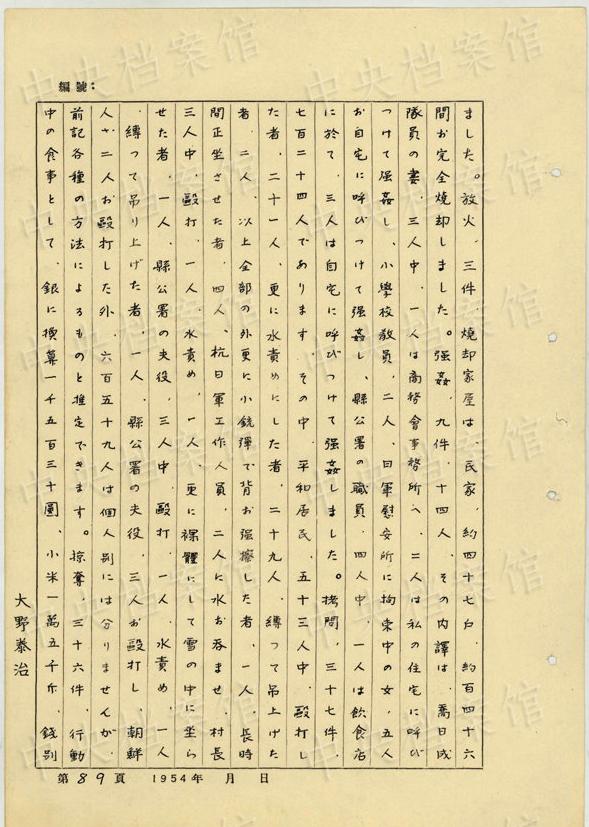 編號:
ました。放火、三件、燒却家屋は、民家、約四十七户、約百四十六
間お完全燒却しました。强姦、九件、十四人、その内譯は、喬日成
隊員の妻、三人中、一人は商務會事務所へ、二人は私の住宅に呼び
つけて强姦し、小學校教員、二人、日軍慰安所に拘束中の女、五人
お自宅に呼びつけて强姦し、縣公署の職員、四人中、一人は飲食店
に於て、三人は自宅に呼びつけて强姦しました。拷問、三十七件、
七百二十四人であります、その中、平和居民、五十三人中、毆打し
た者、二十一人、更に水責めにした者、二十九人、縛って吊上げた
者、二人、以上全部の外更に小銃彈で背お强擦した者、一人、長時
間正坐させた者、四人、杭日軍工作人員、二人に水お呑ませ、村長
三人中、毆打、一人、水責め、一人、更に裸體にして雪の中に坐ら
せた者、一人、縣公署の夫役、三人中、毆打、一人、水責め、一人
、縛って吊り上げた者、一人、縣公署の夫役、三人お毆打し、朝鮮
人、二人お毆打した外、六百五十九人は個人別には分りませんが、
前記各種の方法によるものと推定できます。掠奪、三十六件、行動
中の食事として、銀に換算一千五百三十圓、小米一萬五千斤、錢別
大野泰治
第89頁 1954年 月 日
中央档案馆